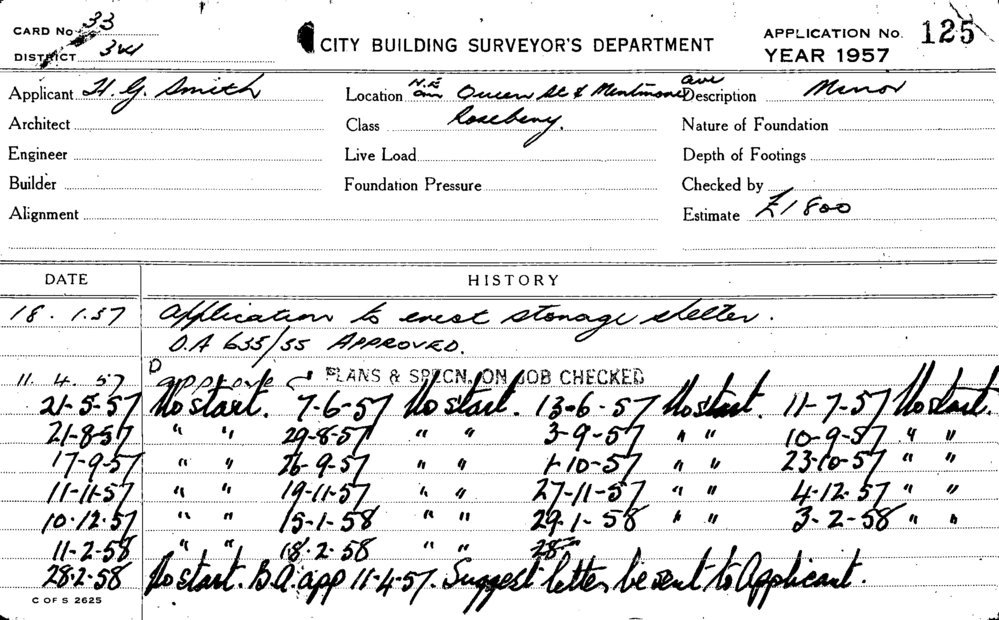 CARD No 33
DISTRICT 3W
CITY BUILDING SURVEYOR'S DEPARTMENT
APPLICATION No. 125
YEAR 1957
Applicant H. G. Smith
Location N.E. Cnr Queen St & Mentmore Ave
Description Minor
Architect
Class Rosebery.
Nature of Foundation
Engineer
Live Load
Depth of Footings
Builder
Foundation Pressure
Checked by
Alignment
Estimate £1800
DATE HISTORY
18. 1.57 Application to erect storage shelter.
D.A 635/55 APPROVED.
11. 4. 57 approved PLANS & SPECN. ON JOB CHECKED
21-5-57 No start. 7-6-57 No start. 13-6-57 No start. 11-7-57 No start.
21-8-57 " " 29-8-57 " " 3-9-57 " " 10-9-57 " "
17-9-57 " " 26-9-57 " " 1-10-57 " " 23-10-57 " "
11-11-57 " " 19-11-57 " " 27-11-57 " " 4-12-57 " "
10.12.57 " " 15-1-58 " " 29-1-58 " " 3-2-58 " "
11-2-58 " " 18-2-58 " " 28
28.2-58 No start. B.A. app 11-4-57. Suggest letter be sent to Applicant.
C OF S 2625